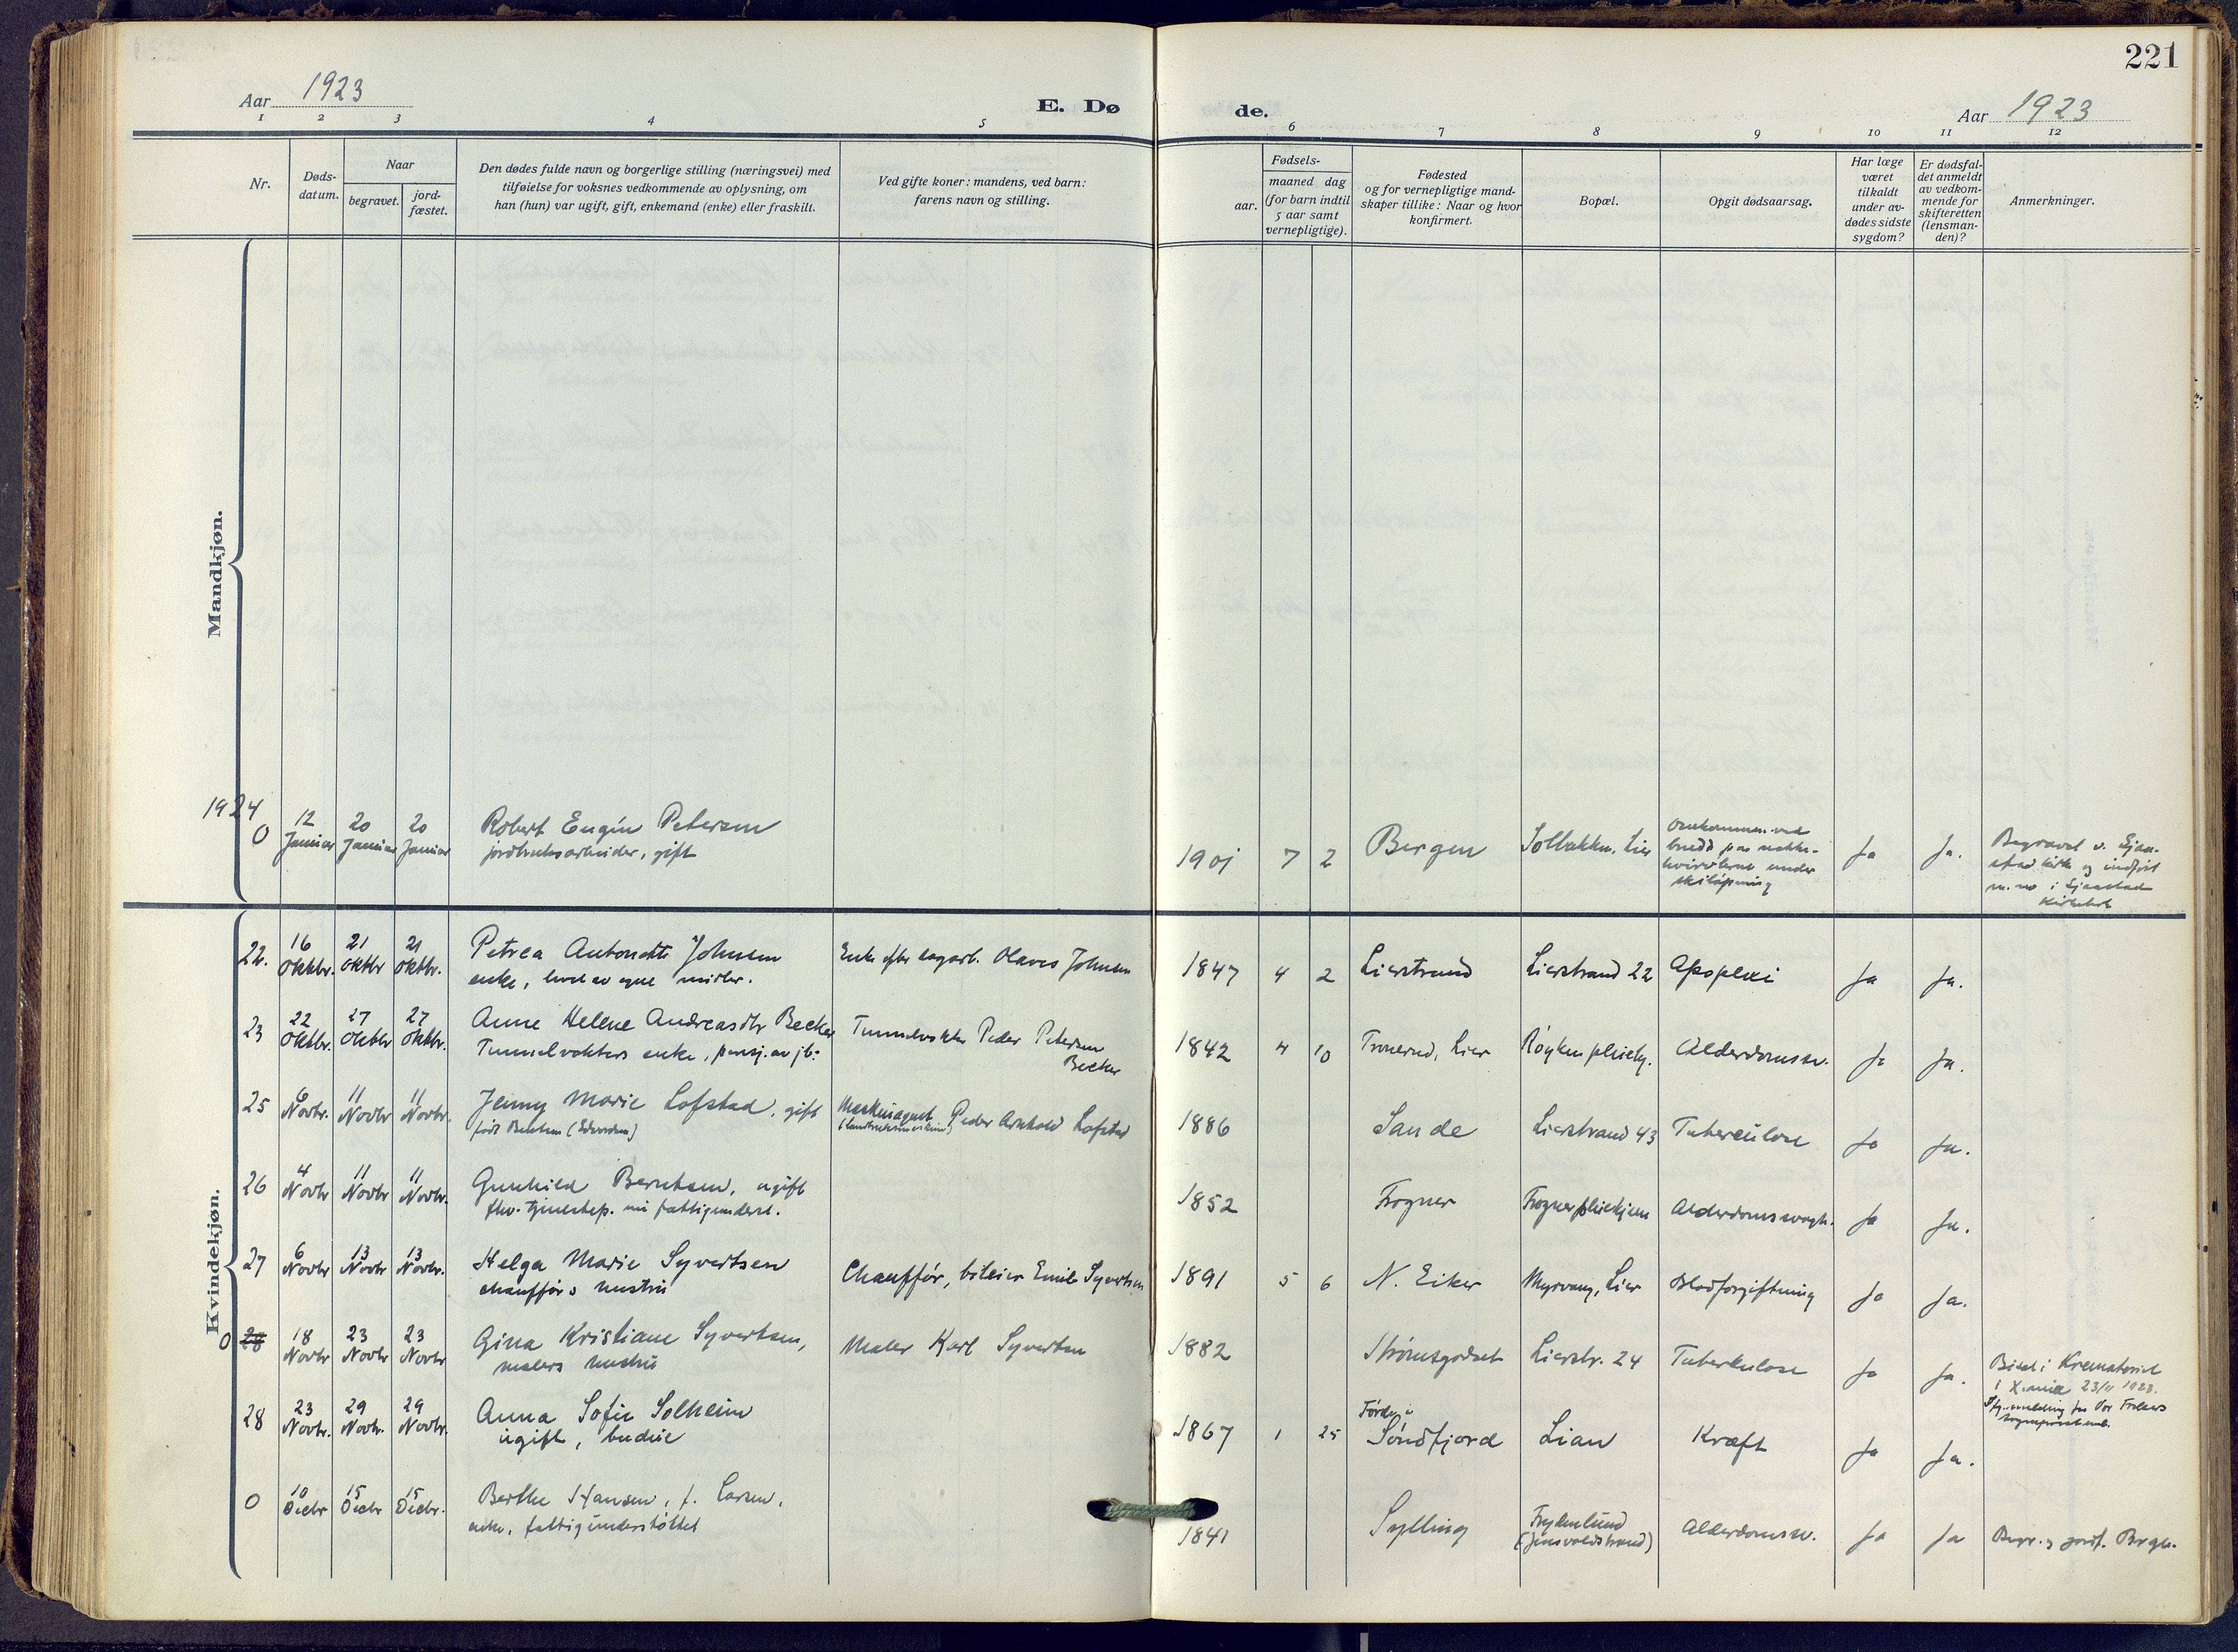 221
Aar 1923
E. Dø
de.
Aar 1923
1 2 3 4 5 6 7 8 9 10 11 12
Nr.
Døds-
datum.
Naar
begravet.
jord-
fæstet.
Den dødes fulde navn og borgerlige stilling (næringsvei) med
tilføielse for voksnes vedkommende av oplysning, om
han (hun) var ugift, gift, enkemand (enke) eller fraskilt.
Ved gifte koner: mandens, ved barn:
farens navn og stilling.
Fødsels-
aar.
maaned dag
(for barn indtil
5 aar samt
vernepligtige).
Fødested
og for vernepligtige mand-
skaper tillike: Naar og hvor
konfirmert.
Bopæl.
Opgit dødsaarsag.
Har læge
været
tilkaldt
under av-
dødes sidste
sygdom?
Er dødsfal-
det anmeldt
av vedkom-
mende for
skifteretten
(lensman-
den)?
Anmerkninger.
Mandkjøn.
1924
0
12
Januar
20
Januar
20
Januar
Robert Eugin Petersen
jordbruksarbeider, gift
1901 7 2
Bergen
Solbakken, Lier
Omkommen ved
brudd paa nakke-
hvirvlerne under
skiløpning
Ja
Ja.
Begravet v. Sjaa-
stad kirke og indført
m. no i Sjaastad
kirkebok
Kvindekjøn.
22.
16
Oktbr.
21
Oktbr
21
Oktbr.
Petrea Antonette Johnsen
enke, levet av egne midler.
Enke efter sagarb. Olaves Johnsen
1847 4 2
Lierstrand
Lierstrand 22
Apoplexi
Ja
Ja.
23
22
Oktbr.
27
Oktbr
27
Oktbr.
Anne Helene Andreasdtr Becker
Tunnelvokters enke, pensj. av jb.
Tunnelvokter Peder Petersen
Becker
1842 4 10
Tronerud, Lier
Røyken pleiehj.
Alderdomssv.
Ja
Ja.
25
6
Novbr.
11
Novbr
11
Novbr.
Jenny Marie Lofstad, gift
født
Peder Arnhold Lofstad
1886
Sande
Lierstrand 43
Tuberculose
Ja
Ja.
26
4
Novbr
11
Novbr
11
Novbr.
Gunhild Berntsen, ugift
fhv. tjenestep. nu fattigunderst.
1852
Frogner
Frogner pleiehjem
Alderdomssvagh.
Ja
Ja.
27
6
Novbr
13
Novbr
13
Novbr.
Helga Marie Syvertsen
chaufførs hustru
Chauffør, bileier Emil Syvertsen
1891 5 6
N. Eiker
Myrvang, Lier
Blodforgiftning
Ja
Ja.
0 28
18
Novbr
23
Novbr
23
Novbr
Gina Kristiane Syvertsen,
malers hustru
Maler Karl Syvertsen
1882
Strømsgodset
Lierstr. 24
Tuberkulose
Ja
Ja.
Bisat i Krematoriet
i X.ania 23/11 1923.
28
23
Novbr.
29
Novbr.
29
Novbr.
Anna Sofie Solheim
ugift, budeie
1867 1 25
Førde i
Søndfjord
Lian
Kræft
Ja
Ja.
0
10
Decbr
15
Decbr
15
Decbr.
Berthe Hansen, f. Larsen,
enke, fattigunderstøttet
1841
Sylling
Frydenlund
(Gusvoldstrand)
Alderdomssv.
Ja
Ja
Begr. og jordf. Brgn.